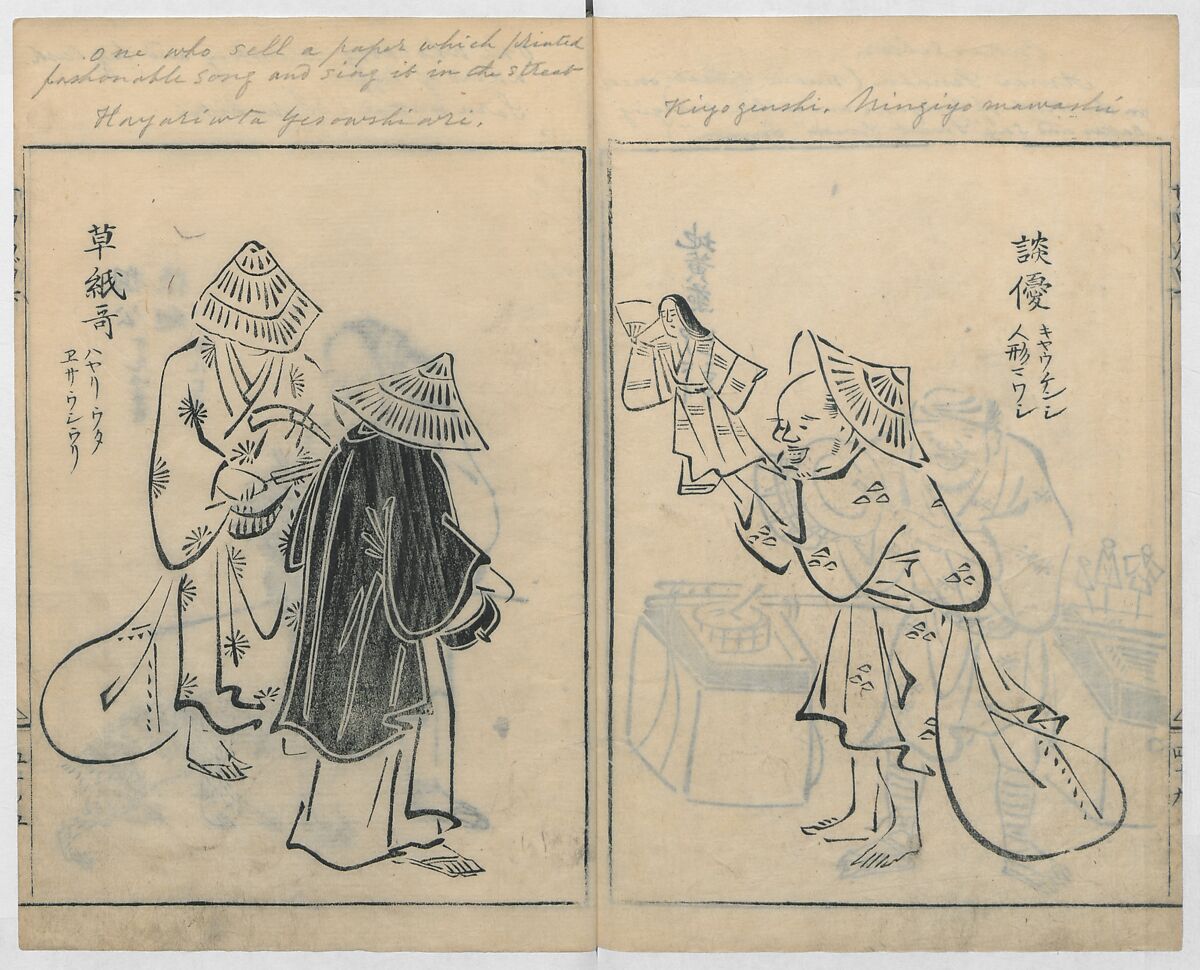 one who sell a paper which printed
fashionable song and sing it in the street
Hayariuta Yesowshiuri.
Kiyogenshi. Ningiyo mawashi
談優
キヤウゲンシ
人形マワシ
草紙哥
ハヤリウタ
ヱサウシウリ